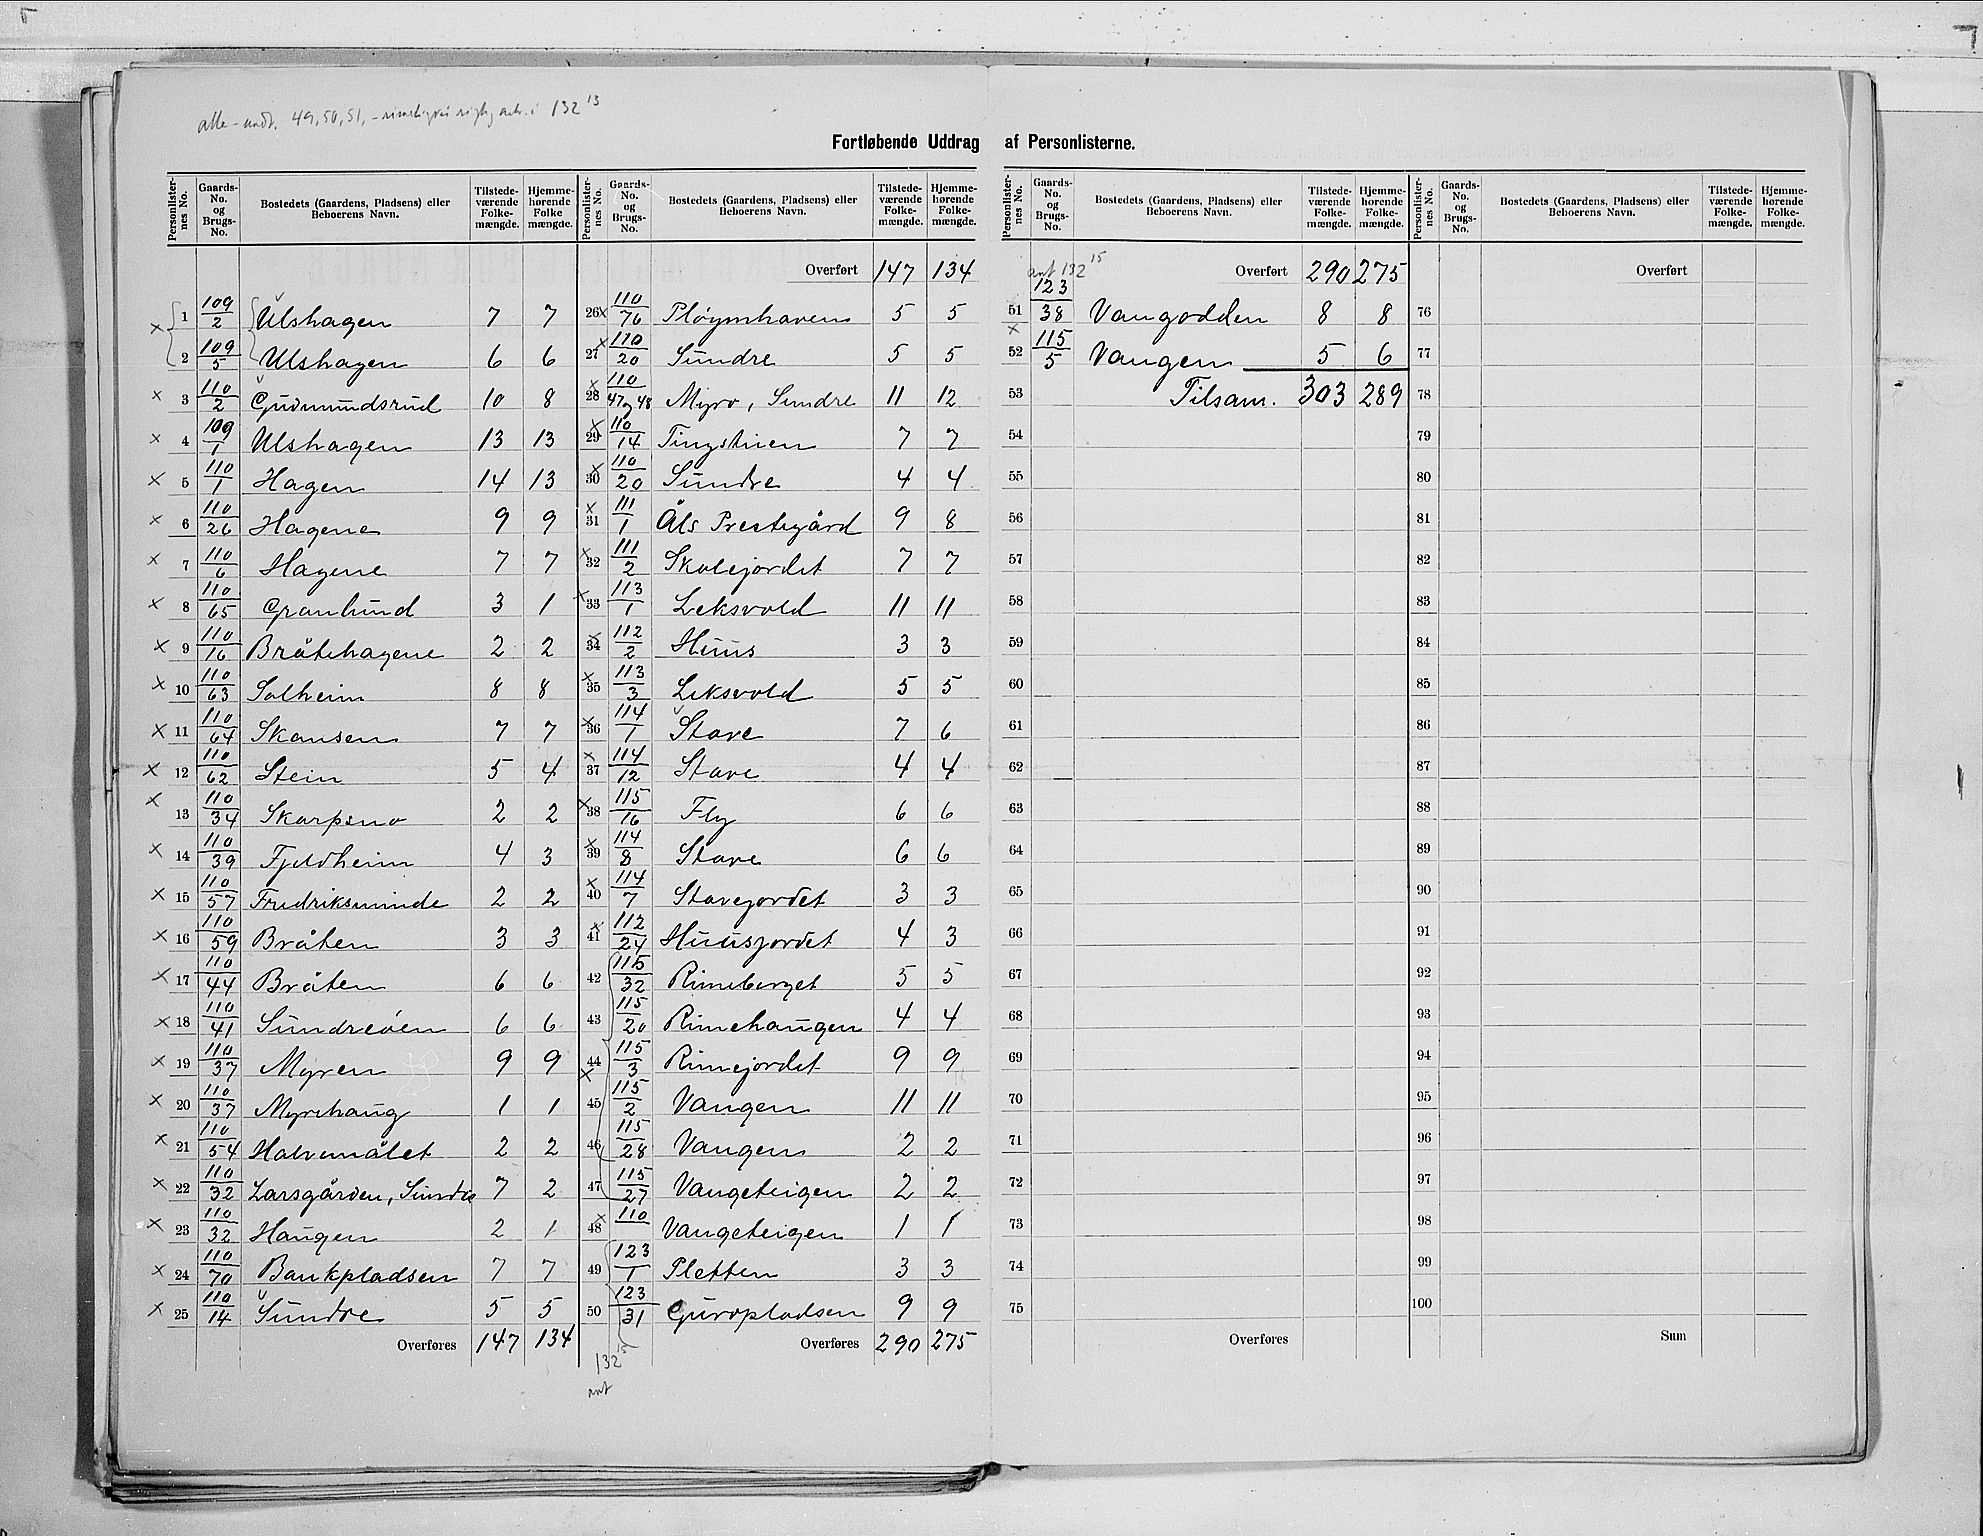 alle - undt. 49, 50, 51, - i 132 13
Fortløbende Uddrag af Personlisterne.
Personlisternes No. Gaards-No. og Brugs-No. Bostedets (Gaardens, Pladsens) eller Beboerens Navn. Tilstedeværende Folkemængde. Hjemmehørende Folkemængde.
1 109/2 Ulshagen 7 7
2 109/5 Ulshagen 6 6
3 110/2 Gudmundsrud 10 8
4 109/1 Ulshagen 13 13
5 110/1 Hagen 14 13
6 110/26 Hagene 9 9
7 110/6 Hagene 7 7
8 110/65 Granlund 3 1
9 110/16 Bråtehagene 2 2
10 110/63 Solheim 8 8
11 110/64 Skansen 7 7
12 110/62 Stein 5 4
13 110/34 Skarpsno 2 2
14 110/39 Fjeldheim 4 3
15 110/57 Fredriksminde 2 2
16 110/59 Bråten 3 3
17 110/44 Bråten 6 6
18 110/41 Sundreøen 6 6
19 110/37 Myren 9 9
20 110/37 Myrehaug 1 1
21 110/54 Halvemålet 2 2
22 110/32 Larsgården, Sundre 7 2
23 110/32 Haugen 2 1
24 110/70 Bankpladsen 7 7
25 110/14 Sundre 5 5
Overføres 147 134
Personlisternes No. Gaards-No. og Brugs-No. Bostedets (Gaardens, Pladsens) eller Beboerens Navn. Tilstedeværende Folkemængde. Hjemmehørende Folkemængde.
Overført 147 134
26 110/76 Pløymhaven 5 5
27 110/20 Sundre 5 5
28 110/47 og 48 Myro, Sundre 11 12
29 110/14 Tingstuen 7 7
30 110/20 Sundre 4 4
31 111/1 Åls Prestegård 9 8
32 111/2 Skolejordet 7 7
33 113/1 Leksvold 11 11
34 112/2 Huus 3 3
35 113/3 Leksvold 5 5
36 114/1 Stave 7 6
37 114/12 Stave 4 4
38 115/16 Fly 6 6
39 114/8 Stave 6 6
40 114/7 Stavejordet 3 3
41 112/24 Huusjordet 4 3
42 115/32 Rimeberget 5 5
43 115/20 Rimehaugen 4 4
44 115/3 Rimejordet 9 9
45 115/2 Vangen 11 11
46 115/28 Vangen 2 2
47 115/27 Vangeteigen 2 2
48 110 Vangeteigen 1 1
49 123/1 Pletten 3 3
50 123/31 Guropladsen 9 9
Overføres 290 275
132 15
ant
Personlisternes No. Gaards-No. og Brugs-No. Bostedets (Gaardens, Pladsens) eller Beboerens Navn. Tilstedeværende Folkemængde. Hjemmehørende Folkemængde.
ant 132 15 Overført 290 275
51 123/38 Vangodden 8 8
52 115/5 Vangen 5 6
53 Tilsam. 303 289
54
55
56
57
58
59
60
61
62
63
64
65
66
67
68
69
70
71
72
73
74
75
Overføres
Personlisternes No. Gaards-No. og Brugs-No. Bostedets (Gaardens, Pladsens) eller Beboerens Navn. Tilstedeværende Folkemængde. Hjemmehørende Folkemængde.
Overført
76
77
78
79
80
81
82
83
84
85
86
87
88
89
90
91
92
93
94
95
96
97
98
99
100
Sum